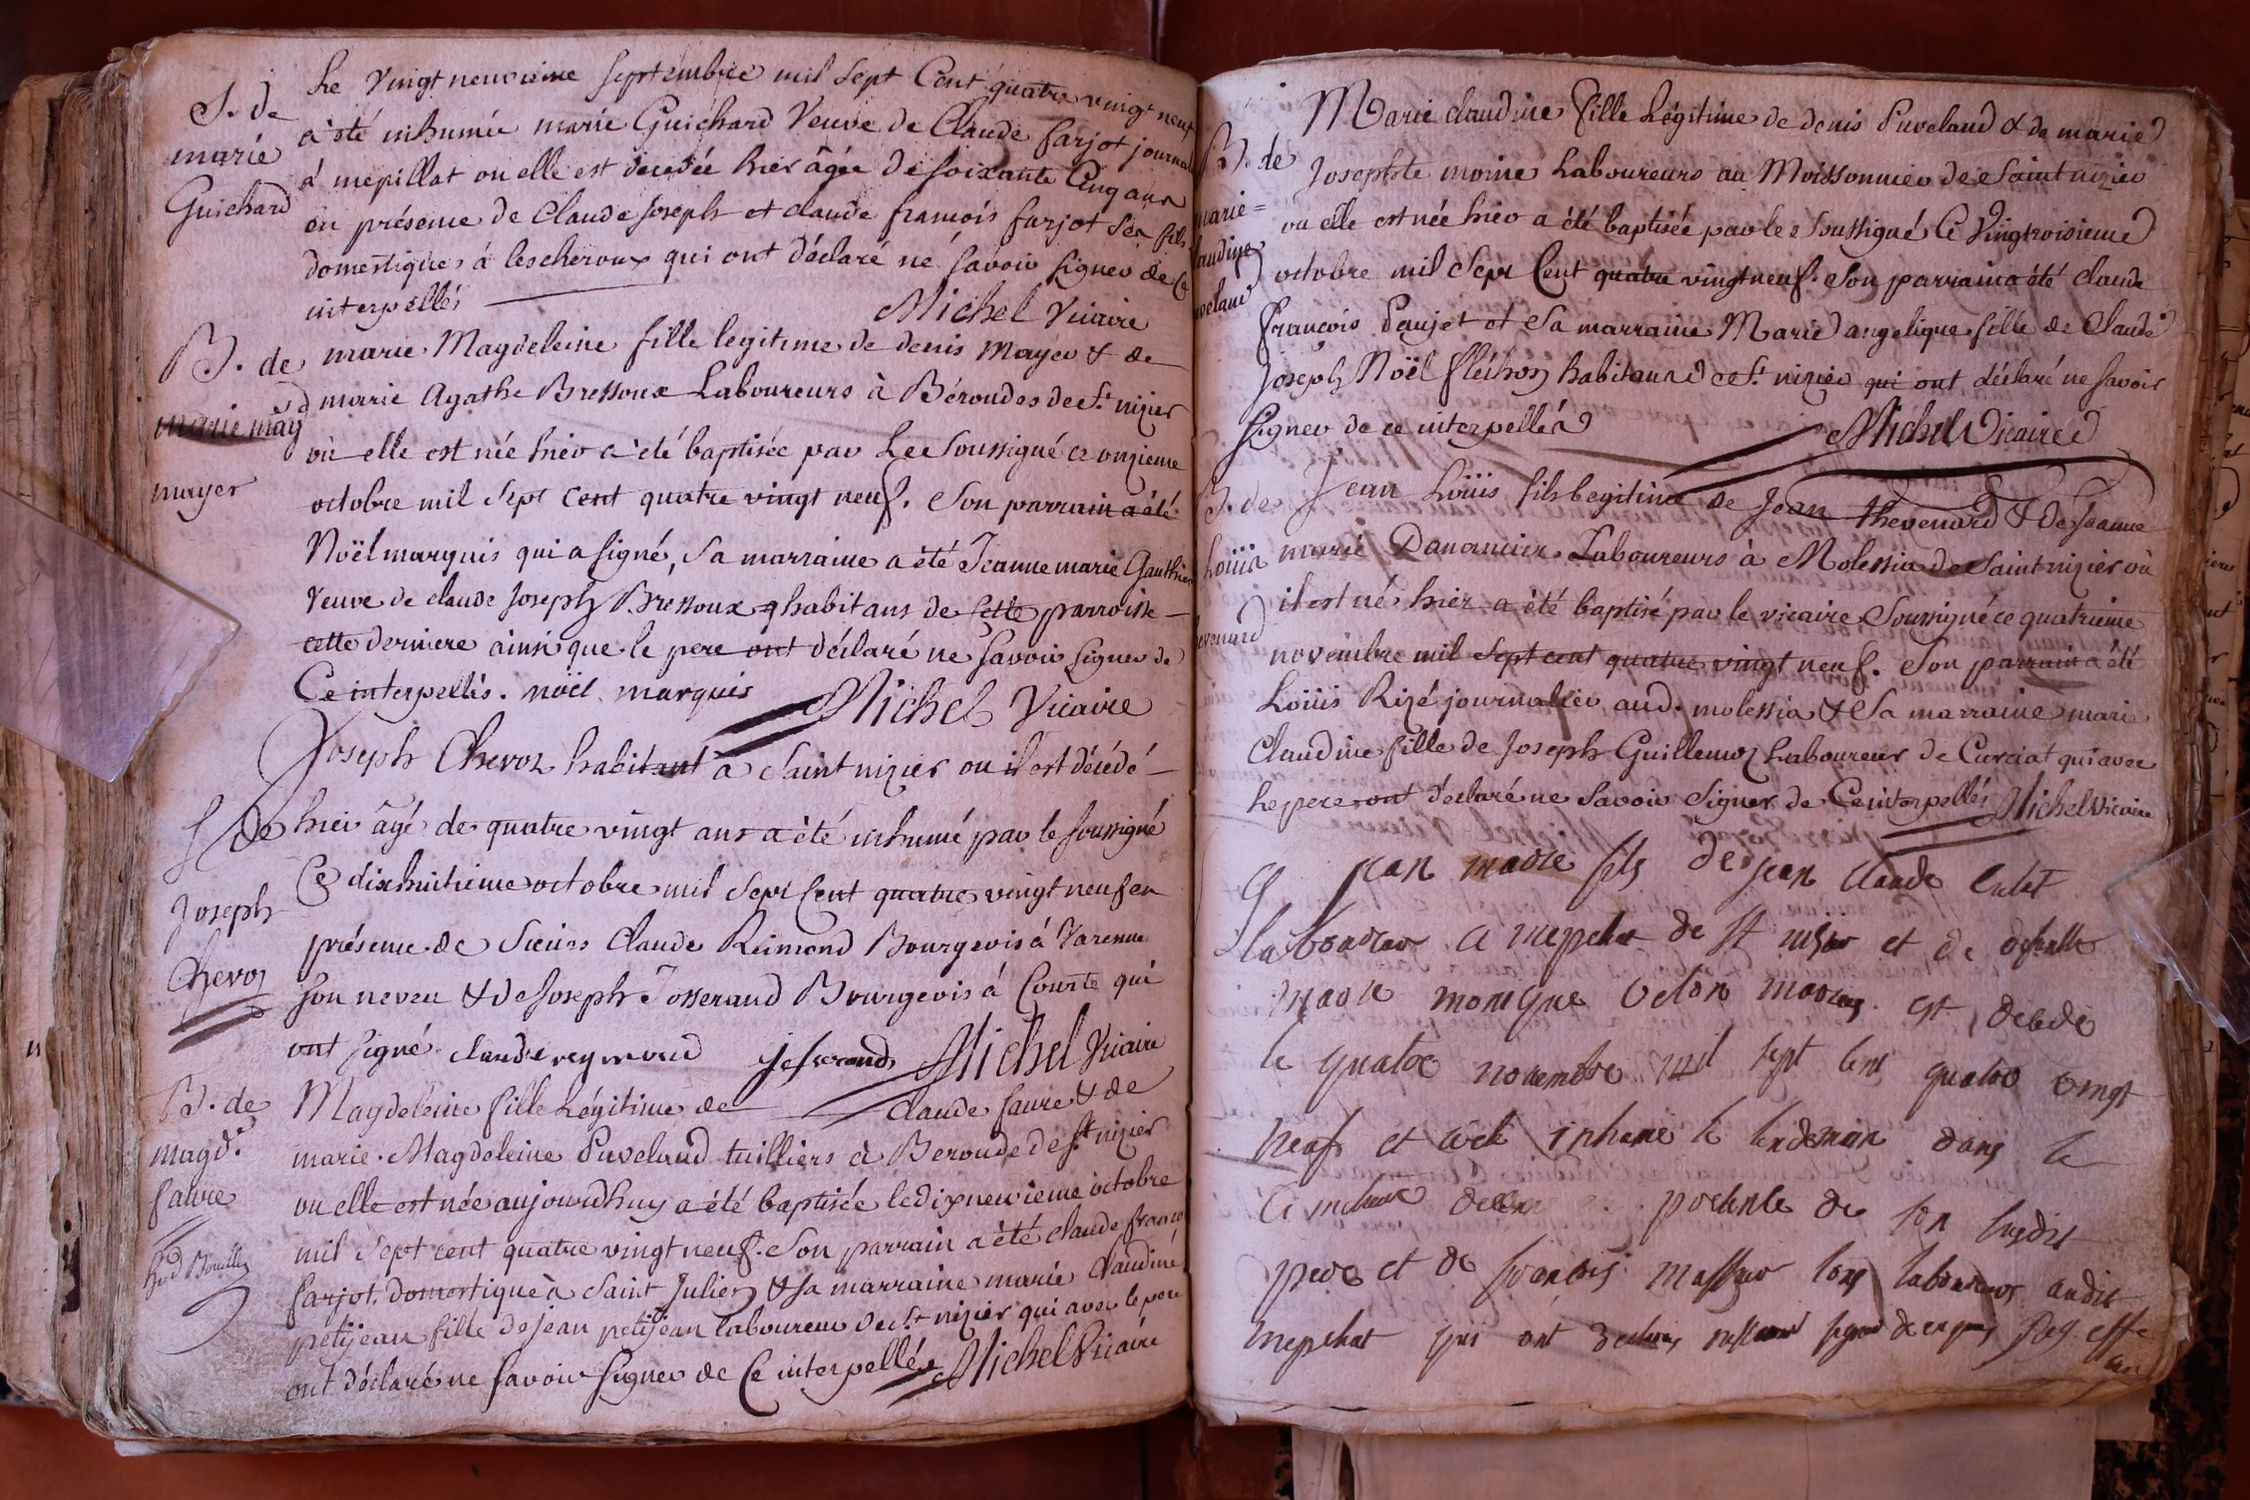 S. de
marie
Guichard
Le vingt neuvieme septembre mil sept Cent quatre vingt neuf
a été inhumée marie Guichard Veuve de Claude farjot journal
à mepillat ou elle est décedée hier âgée de soixante Cinq ans
en présence de Claude Joseph et claude françois farjot ses fils
domestiques à lescheroux qui ont déclaré ne savoir signer de Ce
interpellés
Michel Vicaire
B. de
marie mag
mayer
marie Magdeleine fille legitime de denis Mayer & de
marie Agathe Bressoux Laboureurs à Béroudes de St nizier
où elle est née hier a été baptisée par Le Soussigné ce onzieme
octobre mil sept cent quatre vingt neuf. Son parrain a été
Noël marquis qui a signé, sa marraine a été Jeanne marie Gauthier
Veuve de claude Joseph Bressoux habitans de Cette parroisse
cette derniere ainsi que le pere ont déclaré ne savoir signer de
Ce interpellés. noël marquis Michel Vicaire
S de
Joseph
Chevoz
Joseph Chevoz habitant à Saint nizier ou il est décédé
hier âgé de quatre vingt ans a été inhumé par le soussigné
Ce dixhuitieme octobre mil Sept Cent quatre vingt neuf en
présence de Sieurs Claude Reimond Bourgeois à Varenne
son neveu & de Joseph Josserand Bourgeois à Courte qui
ont signé claude reymond josserand Michel Vicaire
B. de
magd.
faure
Magdeleine fille Légitime de claude faure & de
marie Magdeleine Puveland tuilliers à Beroude de St nizier
ou elle est née aujourdhuy a été baptisée le dixneuvieme octobre
mil Sept cent quatre vingt neuf. Son parrain a été claude franço
farjot domestique à Saint Julien & sa marraine marie Claudine
petijean fille de jean petijean laboureur de St nizier qui avec le pere
ont déclaré ne savoir signer de Ce interpellés Michel Vicaire
B. de
marie =
laudine
uveland
Marie claudine fille Légitime de denis Puveland & de marie
Josephte moine Laboureurs au Moissonnier de Saint nizier
ou elle est née hier a été baptisée par le Soussigné Ce Vingtroisieme
octobre mil Sept Cent quatre vingt neuf. Son parrain a été claude
françois Paujet et Sa marraine Marie angelique fille de Claude
Joseph Noël fléchon habitans de St nizier qui ont déclaré ne savoir
signer de ce interpellés Michel Vicaire
B. de
Loüis
evenard
Jean Loüis fils legitime de Jean thevenard & de Jeanne
marie Danancier Laboureurs à Molessia de Saint nizier où
il est né hier a été baptisé par le vicaire Soussigné ce quatrieme
novembre mil Sept cent quatre vingt neuf. Son parrain a été
Loüis Rizé journalier aud. molessia & Sa marraine marie
Claudine fille de Joseph Guillemoz Laboureur de Curciat qui avec
le pere ont déclaré ne savoir signer de Ce interpellés Michel Vicaire
jean marie fils de jean claude
laboureur a de St nizier et de
marie monique est decede
le quatre novembre mil sept cent quatre vingt
neuf et inhumé le lendemain dans le
de son susdit
pere et de francois laboureurs audit
qui ont